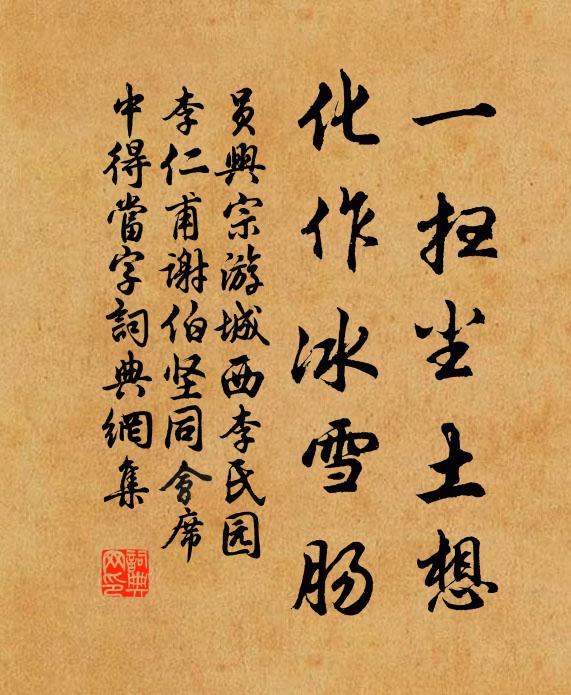 一扫尘土想
化作冰雪肠
员興宗游城西李氏园
李仁甫谢伯坚同會席
中得當字詞典網集
詞典
网印